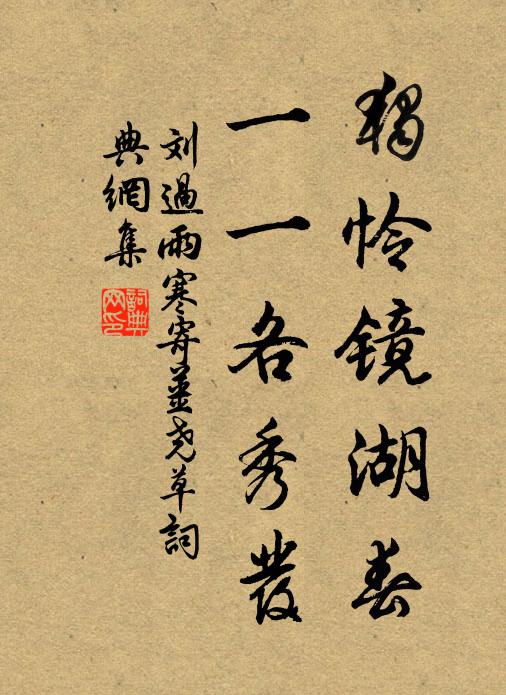 獨怜镜湖春
一一各秀發
刘過雨寒寄姜尧草詞
典網集
詞典网印